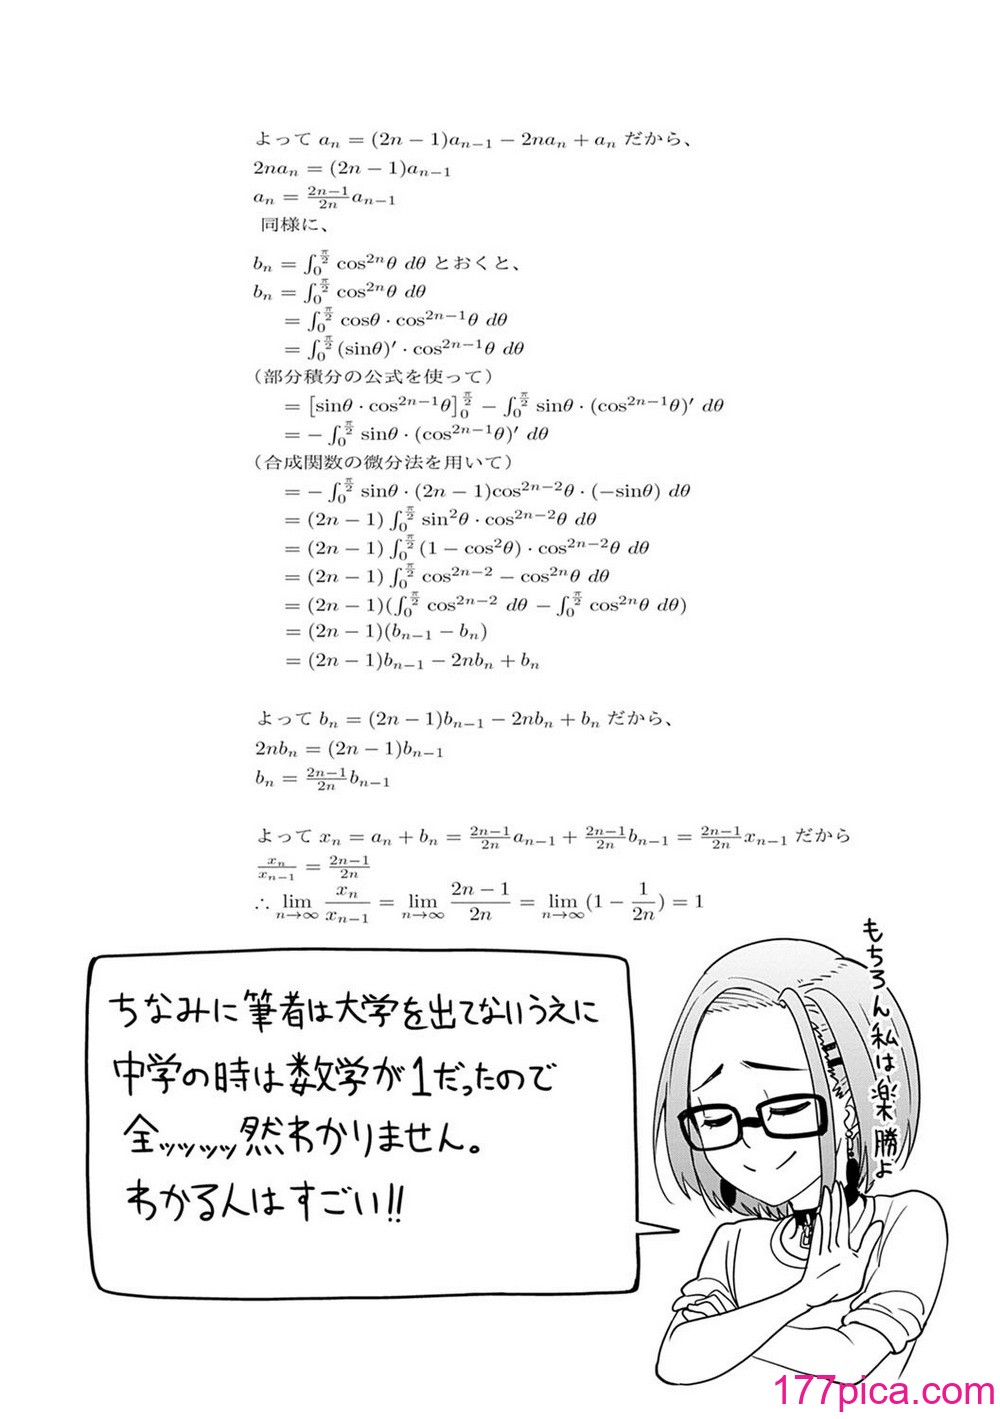 よって aₙ = (2n − 1)aₙ₋₁ − 2naₙ + aₙ だから、
2naₙ = (2n − 1)aₙ₋₁
aₙ = \frac{2n−1}{2n}aₙ₋₁
同様に、
bₙ = ∫_0^{\frac{π}{2}} cos²ⁿθ dθ とおくと、
bₙ = ∫_0^{\frac{π}{2}} cos²ⁿθ dθ
= ∫_0^{\frac{π}{2}} cosθ · cos²ⁿ⁻¹θ dθ
= ∫_0^{\frac{π}{2}} (sinθ)′ · cos²ⁿ⁻¹θ dθ
（部分積分の公式を使って）
= [sinθ · cos²ⁿ⁻¹θ]_0^{\frac{π}{2}} − ∫_0^{\frac{π}{2}} sinθ · (cos²ⁿ⁻¹θ)′ dθ
= − ∫_0^{\frac{π}{2}} sinθ · (cos²ⁿ⁻¹θ)′ dθ
（合成関数の微分法を用いて）
= − ∫_0^{\frac{π}{2}} sinθ · (2n − 1)cos²ⁿ⁻²θ · (−sinθ) dθ
= (2n − 1) ∫_0^{\frac{π}{2}} sin²θ · cos²ⁿ⁻²θ dθ
= (2n − 1) ∫_0^{\frac{π}{2}} (1 − cos²θ) · cos²ⁿ⁻²θ dθ
= (2n − 1) ∫_0^{\frac{π}{2}} cos²ⁿ⁻² − cos²ⁿθ dθ
= (2n − 1)(∫_0^{\frac{π}{2}} cos²ⁿ⁻² dθ − ∫_0^{\frac{π}{2}} cos²ⁿθ dθ)
= (2n − 1)(bₙ₋₁ − bₙ)
= (2n − 1)bₙ₋₁ − 2nbₙ + bₙ
よって bₙ = (2n − 1)bₙ₋₁ − 2nbₙ + bₙ だから、
2nbₙ = (2n − 1)bₙ₋₁
bₙ = \frac{2n−1}{2n}bₙ₋₁
よって xₙ = aₙ + bₙ = \frac{2n−1}{2n}aₙ₋₁ + \frac{2n−1}{2n}bₙ₋₁ = \frac{2n−1}{2n}xₙ₋₁ だから
\frac{xₙ}{xₙ₋₁} = \frac{2n−1}{2n}
∴ \lim_{n→∞} \frac{xₙ}{xₙ₋₁} = \lim_{n→∞} \frac{2n − 1}{2n} = \lim_{n→∞} (1 − \frac{1}{2n}) = 1
もちろん私は楽勝よ
ちなみに筆者は大学を出てないうえに
中学の時は数学が1だったので
全ッッッッ然わかりません。
わかる人はすごい!!
177pica.com